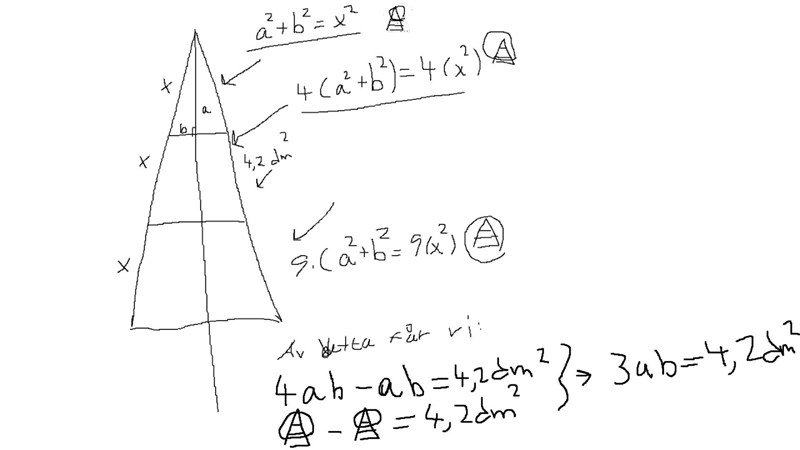 a²+b²=x²
x
4(a²+b²)=4(x²)
a
b
x
4,2 dm²
x
9.(a²+b²=9(x²)
Av detta får vi:
4ab-ab=4,2dm² } ⇒ 3ab=4,2dm²
- = 4,2dm²